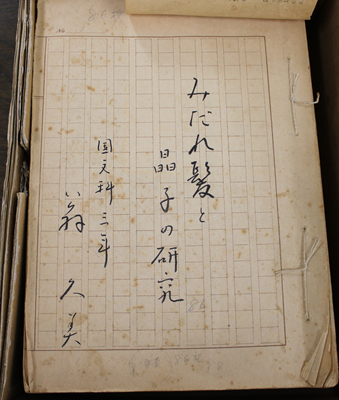 みだれ髪と
晶子の研究
国文科三年
久美